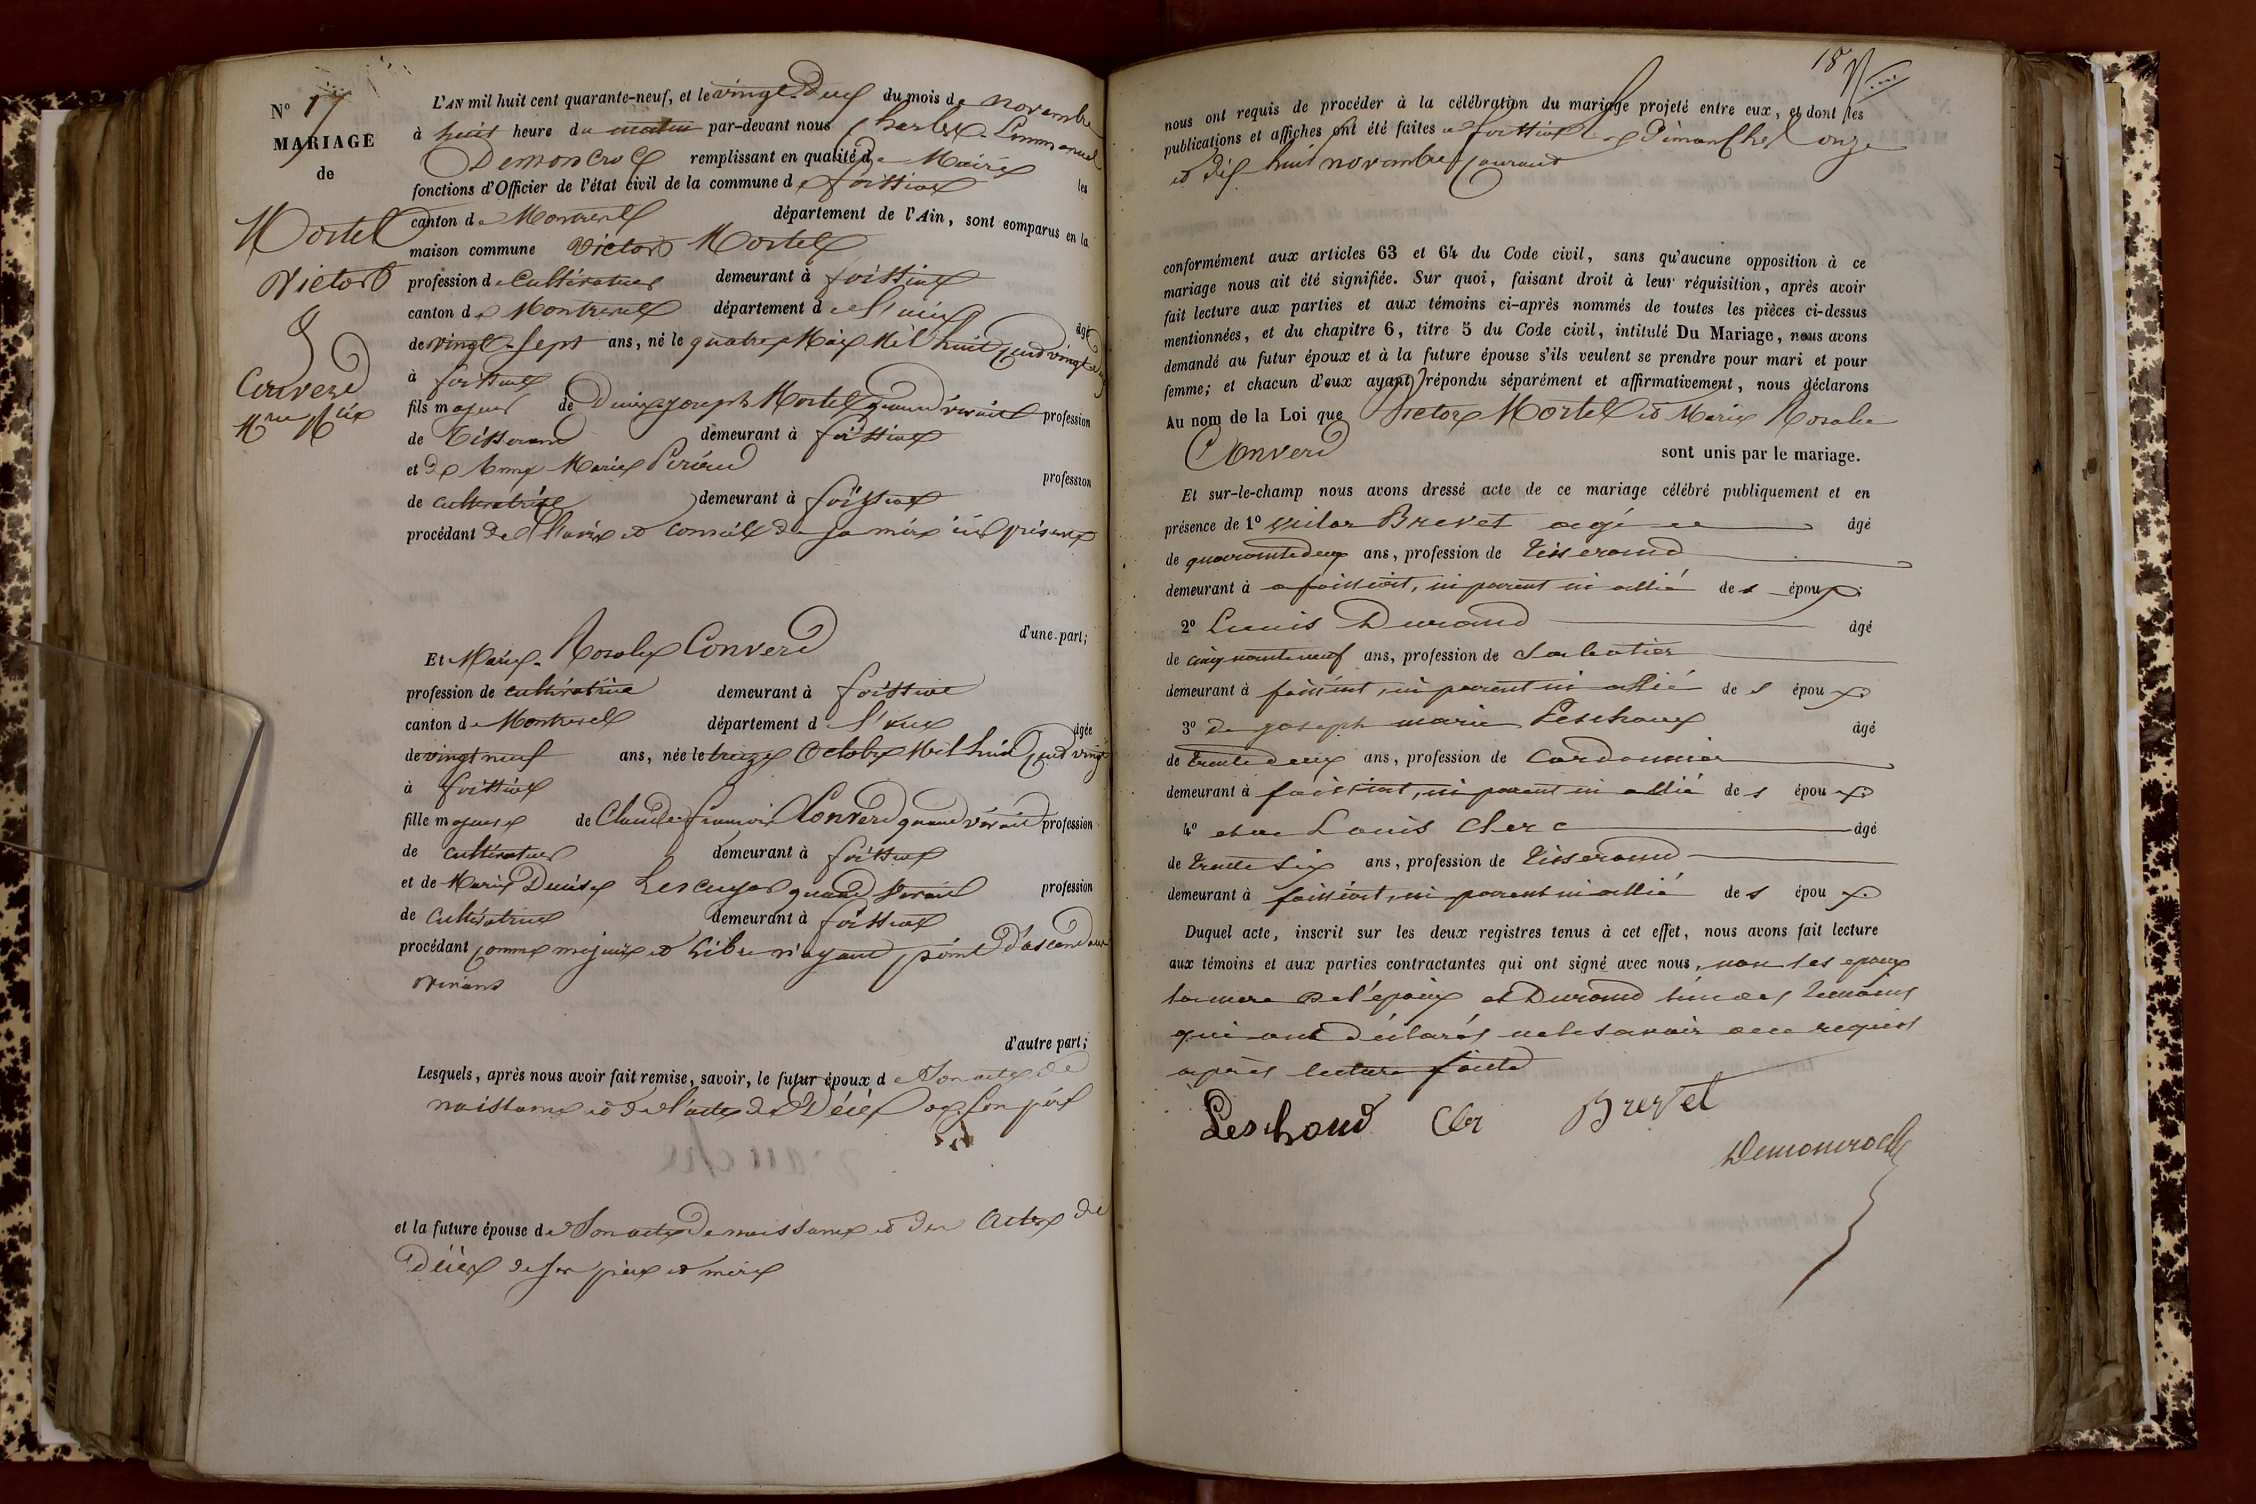 N° 17
MARIAGE
de
Mortel
Victor
&
Converd
Mrie
L'AN mil huit cent quarante-neuf, et le vingt-deux du mois de novembre
à huit heure du matin par-devant nous Charles Emmanuel
Demoncroc remplissant en qualité de Maire les
fonctions d'Officier de l'état civil de la commune de foissiat
canton de Montrevel département de l'Ain, sont comparus en la
maison commune Victor Mortel
profession de Cultivateur demeurant à foissiat
canton de Montrevel département de l'ain âgé
de vingt-sept ans, né le quatre Mai Mil huit cend vingt deux
à foissiat
fils majeur de Denis joseph Mortel quand vivait profession
de Tisserand demeurant à foissiat
et de Anne Marie profession
de cultivatrice demeurant à foissiat
procédant de l'avis et conseil de sa mère ici présente
d'une part;
Et Marie Rosalie Converd
profession de cultivatrice demeurant à foissiat
canton de Montrevel département de l'ain âgée
de vingt neuf ans, née le treize Octobre Mil huit cend vingt
à foissiat
fille majeure de Claude françois Converd quand vivait profession
de cultivateur demeurant à foissiat
et de Marie Denise Lescuyer quand vivait profession
de Cultivatrice demeurant à foissiat
procédant comme majeure et libre n'ayant point d'ascendant
vivans
d'autre part;
Lesquels, après nous avoir fait remise, savoir, le futur époux de Son acte de
naissance et de l'acte de Décès de son père
et la future épouse de Son acte de naissance et des Actes de
Décès de ses père et mère
18
nous ont requis de procéder à la célébration du mariage projeté entre eux, et dont les
publications et affiches ont été faites à foissiat les Dimanches onze
et dix huit novembre courant
conformément aux articles 63 et 64 du Code civil, sans qu'aucune opposition à ce
mariage nous ait été signifiée. Sur quoi, faisant droit à leur réquisition, après avoir
fait lecture aux parties et aux témoins ci-après nommés de toutes les pièces ci-dessus
mentionnées, et du chapitre 6, titre 5 du Code civil, intitulé Du Mariage, nous avons
demandé au futur époux et à la future épouse s'ils veulent se prendre pour mari et pour
femme; et chacun d'eux ayant répondu séparément et affirmativement, nous déclarons
Au nom de la Loi que Victor Mortel et Marie Rosalie
Converd sont unis par le mariage.
Et sur-le-champ nous avons dressé acte de ce mariage célébré publiquement et en
présence de 1° Brevet agé de âgé
de quarante deux ans, profession de Tisserand
demeurant à a foissiat, ni parent ni allié des époux.
2° Louis Durand âgé
de cinquante neuf ans, profession de Sabotier
demeurant à foissiat, ni parent ni allié des époux
3° de joseph marie Leschaux âgé
de trente deux ans, profession de Cordonnier
demeurant à foissiat, ni parent ni allié des époux.
4° et de Louis Clerc âgé
de trente six ans, profession de Tisserand
demeurant à foissiat, ni parent ni allié des époux.
Duquel acte, inscrit sur les deux registres tenus à cet effet, nous avons fait lecture
aux témoins et aux parties contractantes qui ont signé avec nous, non les epoux
la mere de l'époux et Durand l'un des temoins
qui ont déclarés ne le savoir de ce requis
après lecture faite
Leschoud Cler Brevet
Demoncroc